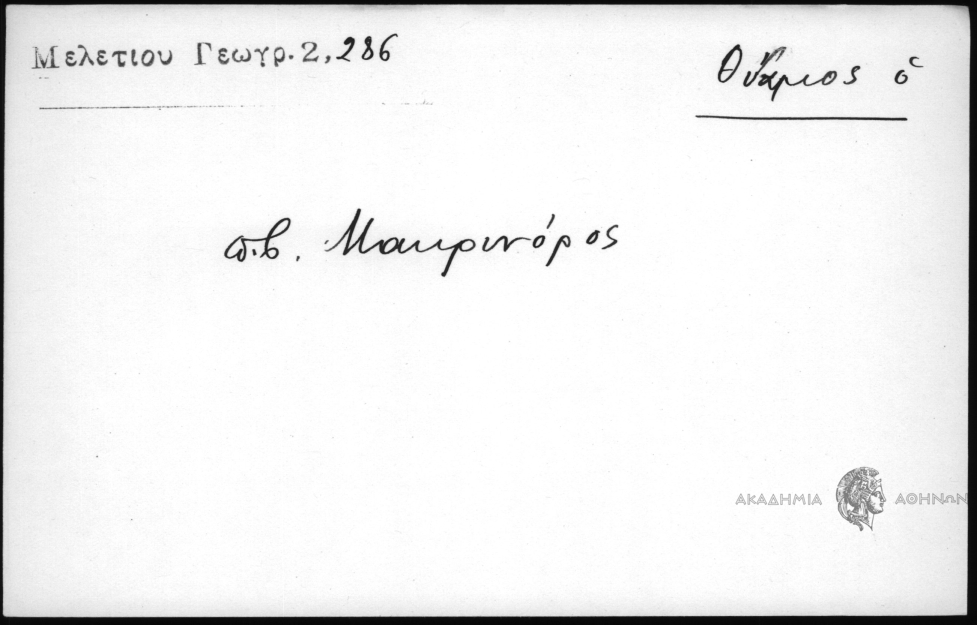 Μελετίου Γεωγρ. 2, 286
Θύαμιος ὁ
πβ. Μακρινόρος
ΑΚΑΔΗΜΙΑ ΑΘΗΝΩΝ